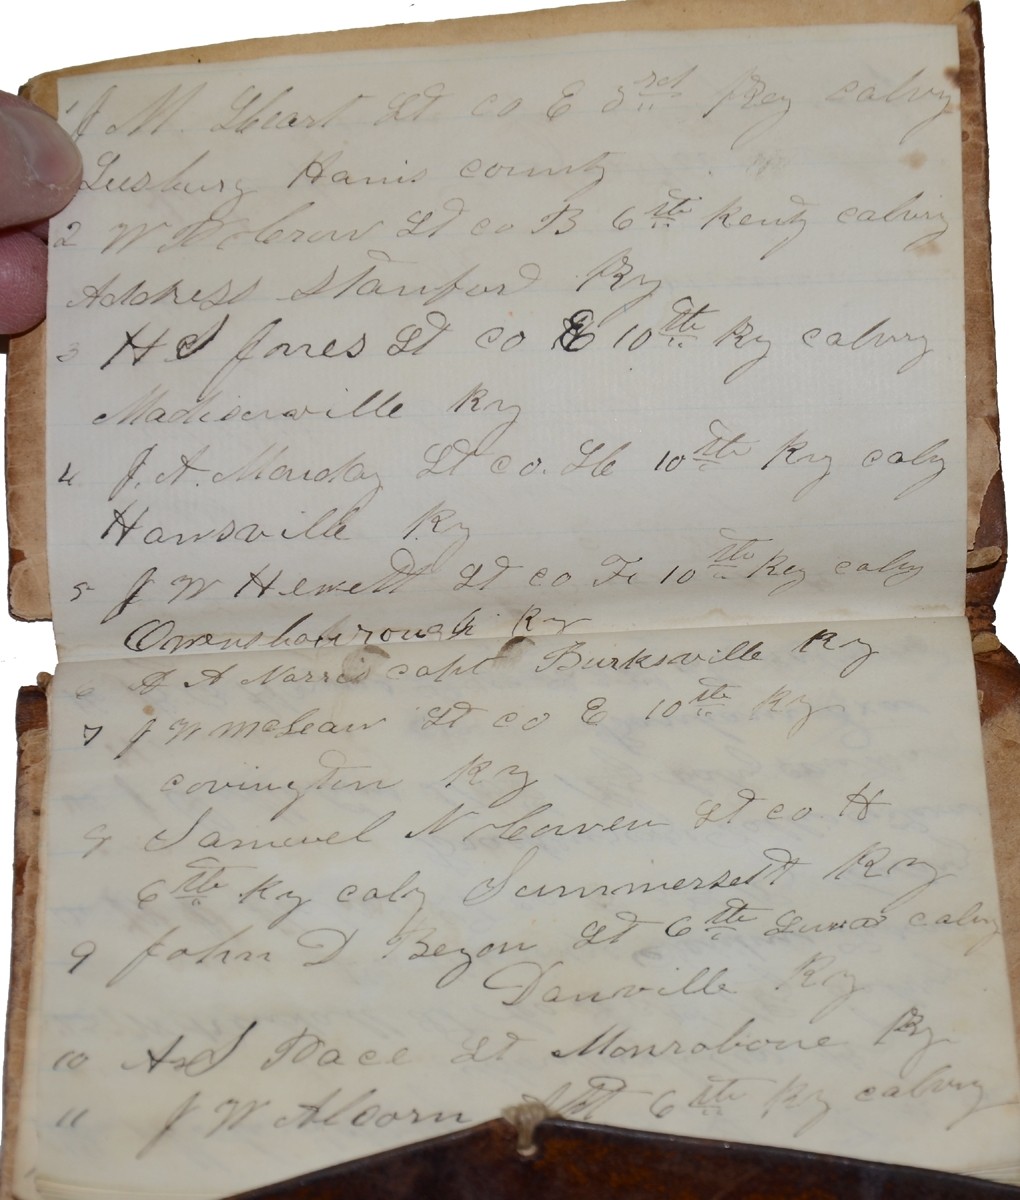 1 J M Lt co E 3rd Ky calvry
Leesburg Haris county
2 W Lt co B 6th Kenty calvry
Address Stanford Ky
3 H S Jones Lt co E 10th Ky calvry
Madisonville Ky
4 J. A. Monday Lt co. 10th Ky calvy
Hawsville Ky
5 J W Hewett Lt co 10th Ky calvy
Owensborrough Ky
6 A A Norris capt Burksville Ky
7 J W McLean Lt co E 10th Ky
covington Ky
8 Samuel N Lt co H
6th Ky calvy Summersett Ky
9 John D Lt 6th calvry
Danville Ky
10 Lt Ky
11 J W Alcorn 6th Ky calvry